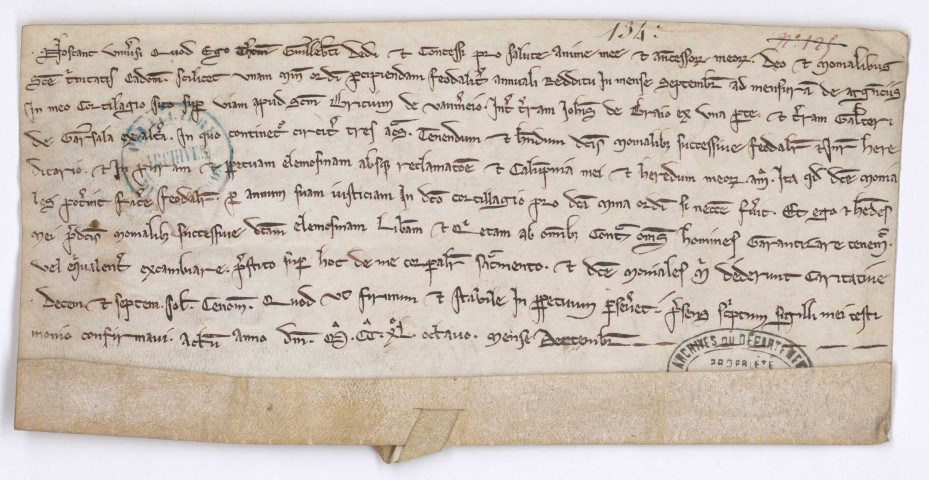 134
n° 125
Noscant universi quod ego Thom Guilleberti dedi et concessi pro salute anime mee et antecessor meor. Deo et monialibus
Sce Trinitatis Cadom. scilicet unam minā ordi percipiendam feodalitr annuali redditu in mense Septembr ad mensurā de argenciis
in meo cortilagio sito supr viam apud Scm Cyricum de . intr trram Johis de Braio ex una parte. et trram Galteri
de Garsala ex altra. in quo continetr circitr tres acs. Tenendum et hndum dcis monialibus successive feodalitr et jure here
ditario. et in puram et perpetuam elemosinam absqz reclamatōe et calumpnia mei et heredum meor. Ita qd dce monia
les potrint facre feodalitr per annum suam iusticiam in dco cortillagio pro dca mina ordi si necce furit. Et ego et hedes
mei prdcis monialibz successive dcam elemosinam libam et qietam ab omibz contra omes homines garantizare tenemr.
vel equivalentr excambiare. prstito supr hoc de me corporalitr sacramento. et dce moniales mi dederunt caritative
decem et septem sol. Cenom. Quod ut firmum et stabile in perpetuum persevet. prsens scriptum sigilli mei testi
monio confirmavi. Actum anno Dni. Mo. CCo. XLo. octavo. mense Decembri
ARCHIVES
ARCHIVES DU DÉPARTEMENT
PROPRIÉTÉ